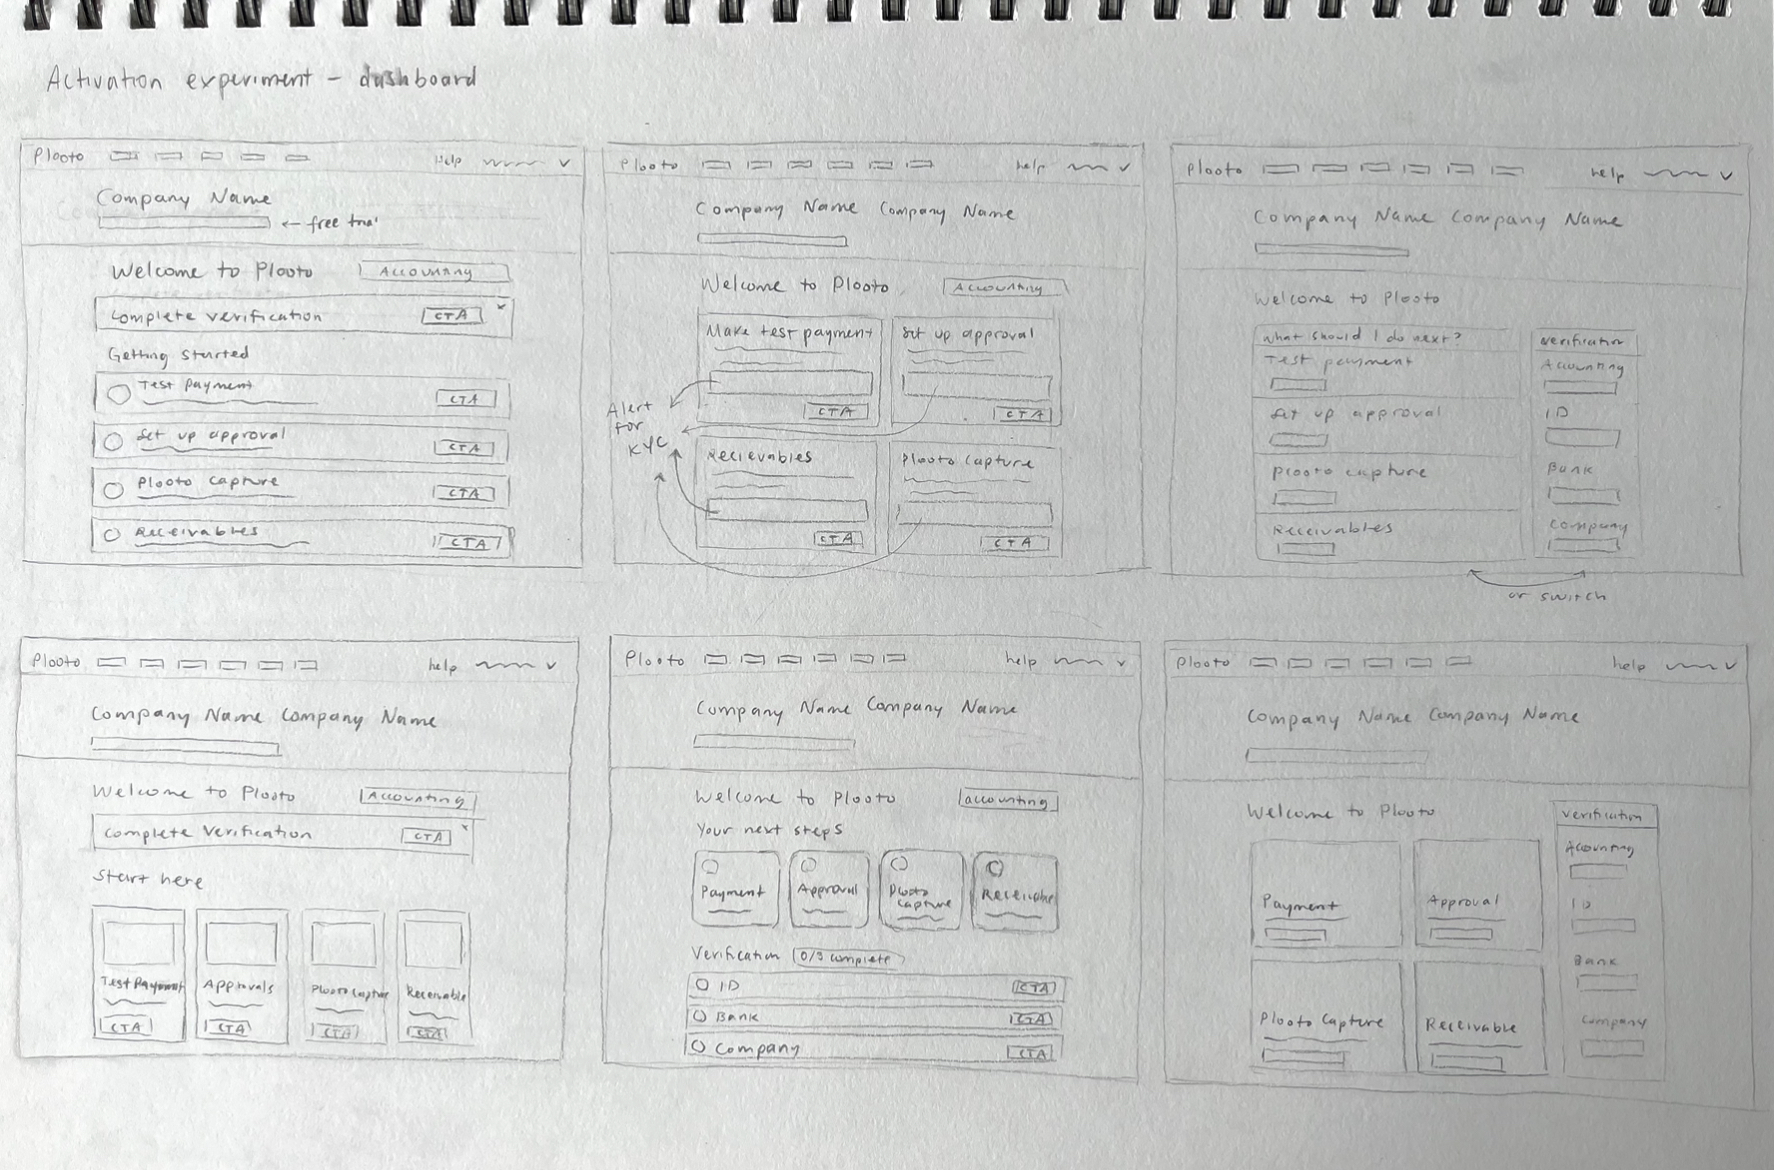 Activation experiment - dashboard
Plooto Help
Company Name
← free trial
Welcome to Plooto Accounting
Complete verification CTA x
Getting started
Test Payment CTA
Set up approval CTA
Plooto Capture CTA
Receivables CTA
Plooto help
Company Name Company Name
Welcome to Plooto Accounting
Make test payment Set up approval
CTA CTA
Alert
for
KYC
Recievables Plooto Capture
CTA CTA
Plooto help
Company Name Company Name
Welcome to Plooto
What should I do next? Verification
Test payment Accounting
Set up approval ID
Plooto capture Bank
Receivables Company
or switch
Plooto help
Company Name Company Name
Welcome to Plooto Accounting
Complete Verification CTA x
Start here
Test Payment Approvals Plooto Capture Receivable
CTA CTA CTA CTA
Plooto help
Company Name Company Name
Welcome to Plooto accounting
Your next steps
Payment Approval Plooto Capture Receivable
Verification 0/3 complete
ID CTA
Bank CTA
Company CTA
Plooto help
Company Name Company Name
Welcome to Plooto Verification
Accounting
Payment Approval ID
Bank
Plooto Capture Receivable Company